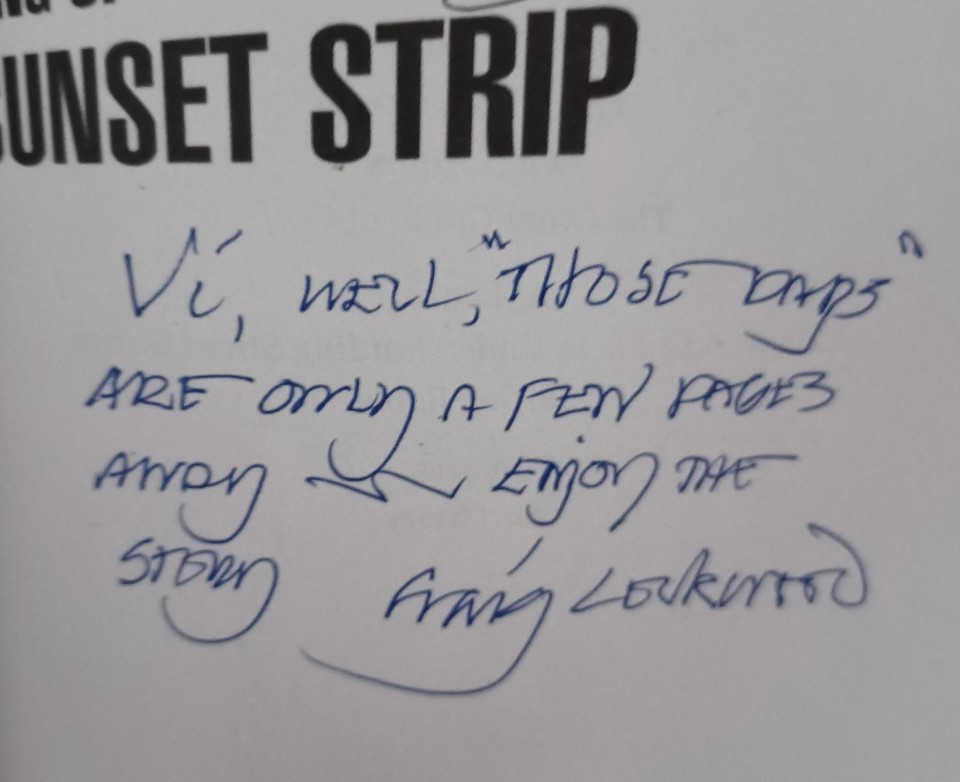 SUNSET STRIP
Vi, WELL, "THOSE DAYS"
ARE ONLY A FEW PAGES
AWAY — ENJOY THE
STORY Craig Lockwood